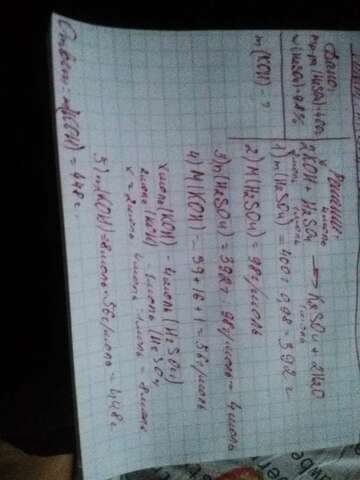 Дано:
m р-ра (H2SO4) = 400 г
w (H2SO4) = 98%
m (KOH) - ?
Решение:
x моль 4 моль
2KOH + H2SO4 → K2SO4 + 2H2O
2 моль 1 моль 1 моль
1) m(H2SO4) = 400 · 0,98 = 392 г
2) M(H2SO4) = 98 г/моль
3) n(H2SO4) = 392 г : 98 г/моль = 4 моль
4) M(KOH) = 39 + 16 + 1 = 56 г/моль
x моль (KOH) - 4 моль (H2SO4)
2 моль (KOH) - 1 моль (H2SO4)
x = 2 моль · 4 моль : 1 моль = 8 моль
5) m(KOH) = 8 моль · 56 г/моль = 448 г
Ответ: m(KOH) = 448 г.